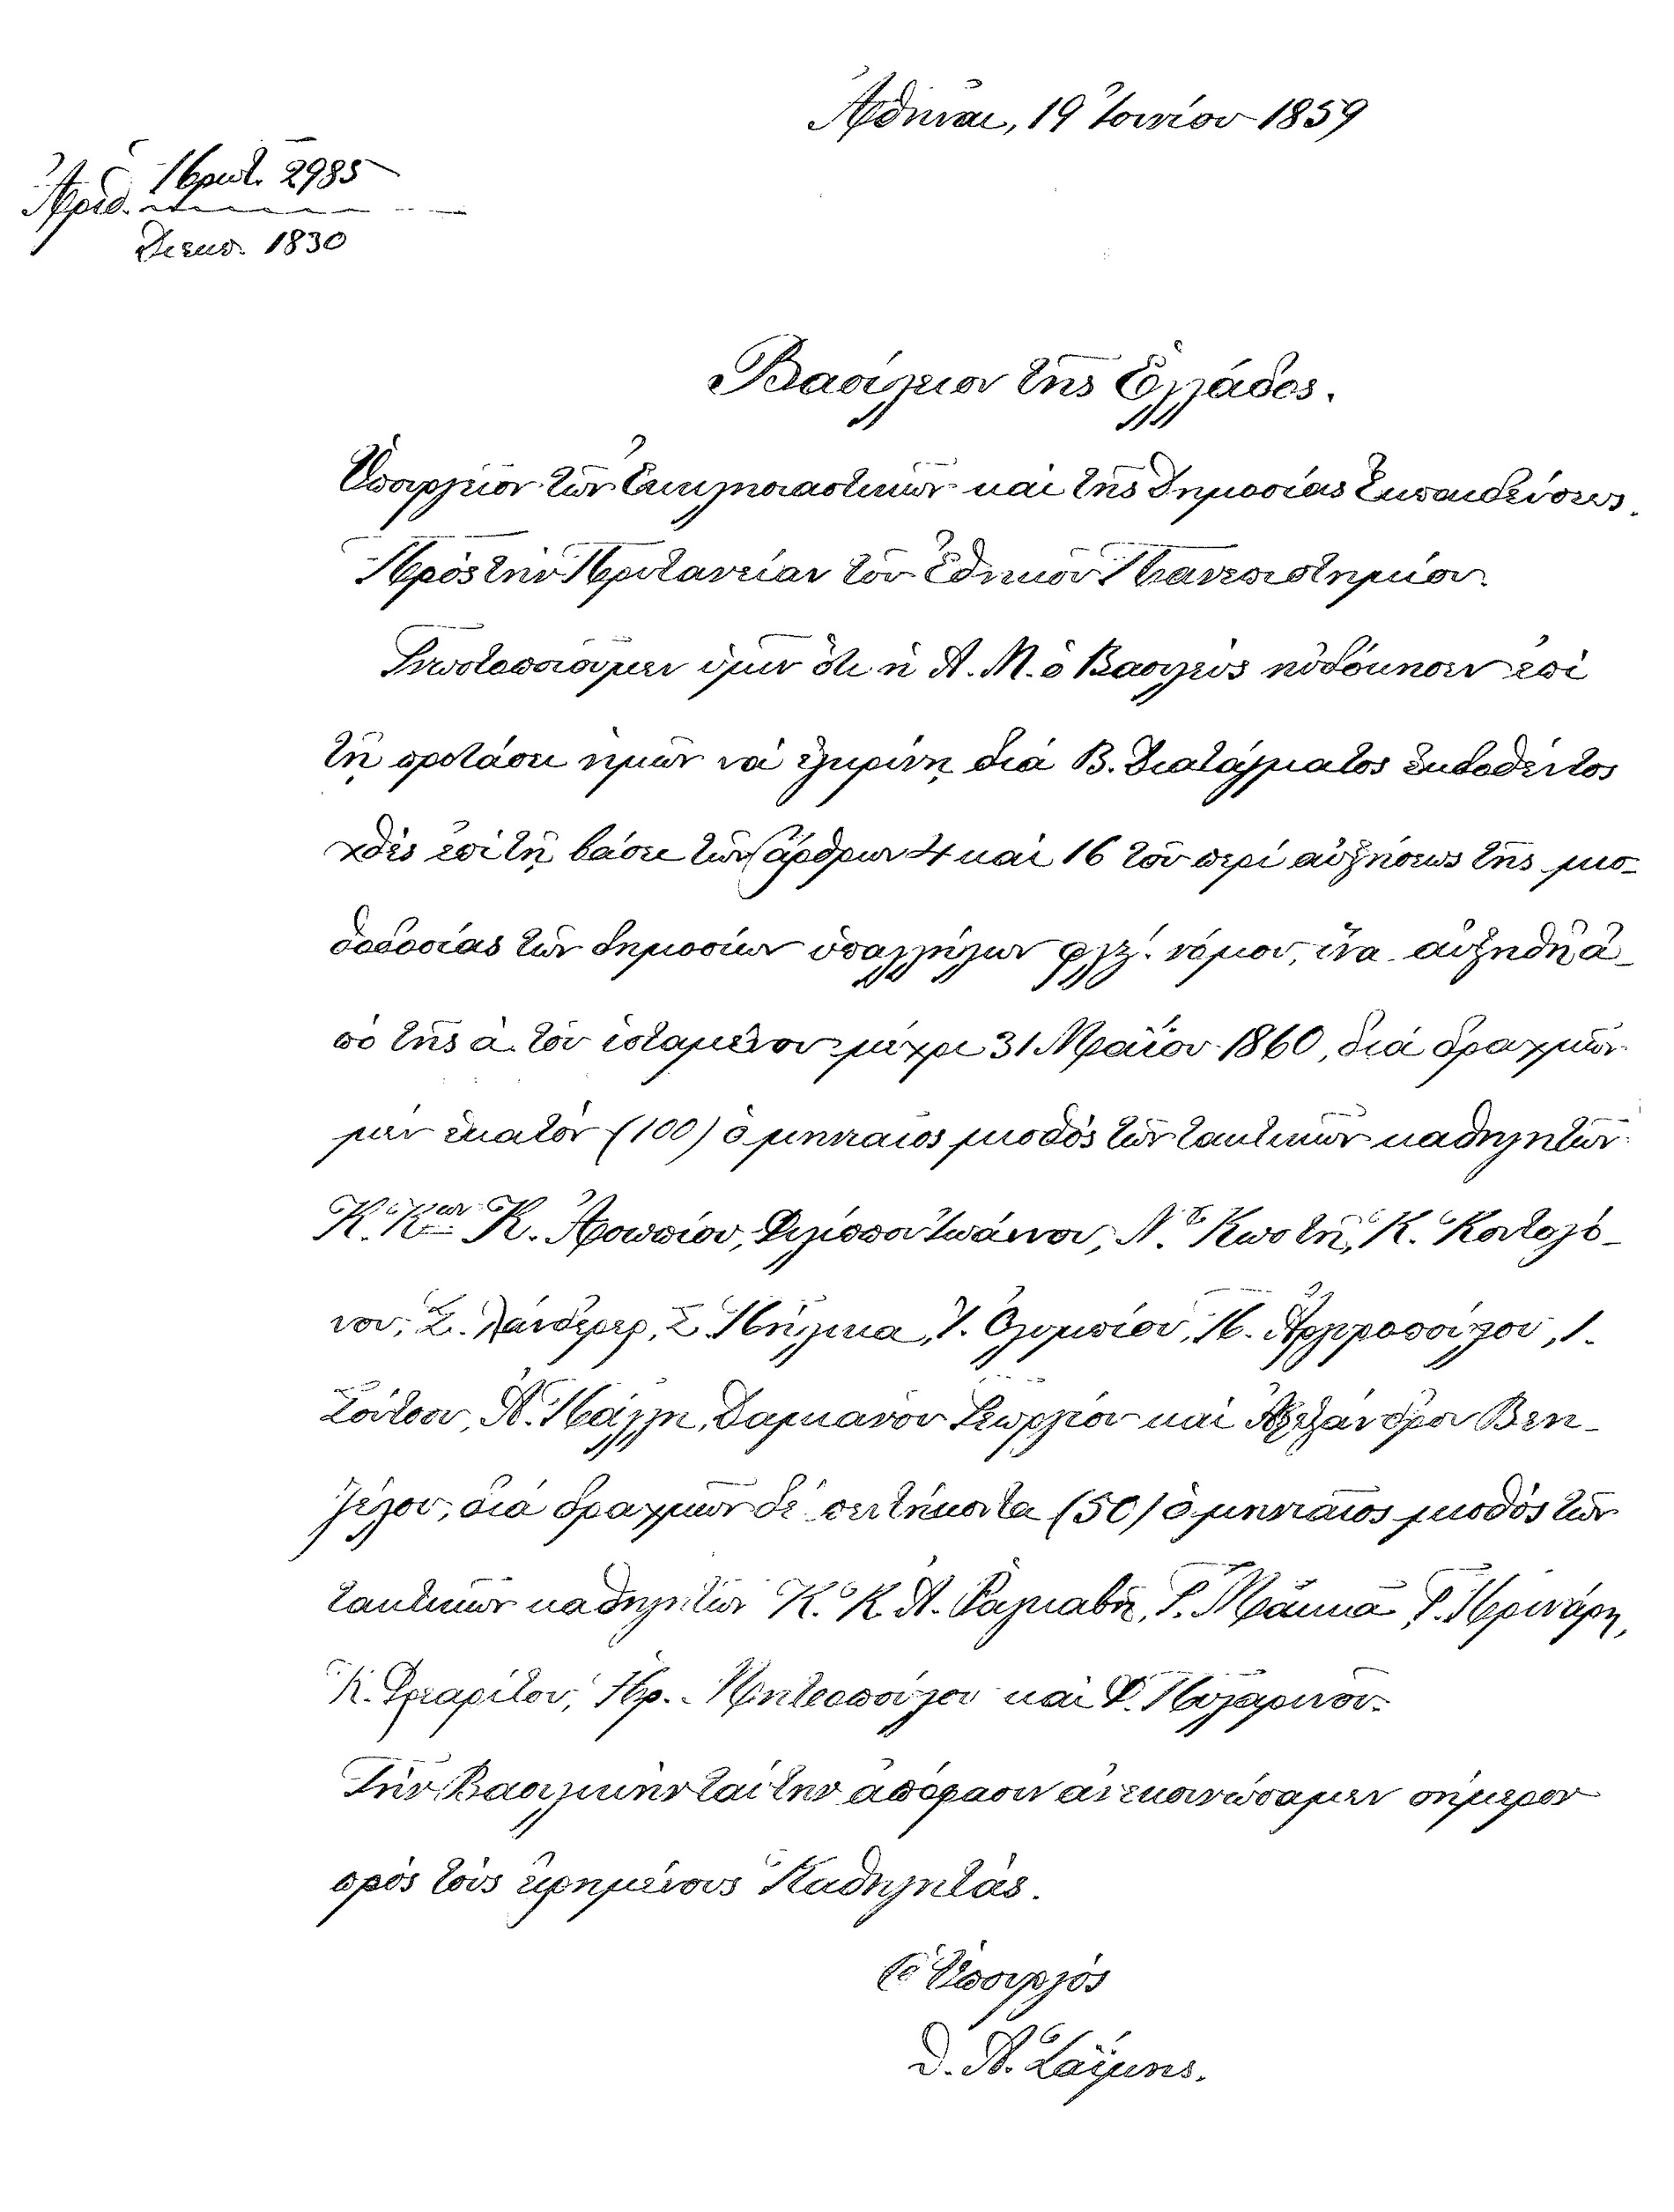 Ἀθῆναι, 19 Ἰουνίου 1859
Πρωτ. 2985
Ἀριθ.
Διεκπ. 1830
Βασίλειον τῆς Ἑλλάδος.
Ὑπουργεῖον τῶν Ἐκκλησιαστικῶν καὶ τῆς Δημοσίας Ἐκπαιδεύσεως.
Πρὸς τὴν Πρυτανείαν τοῦ Ἐθνικοῦ Πανεπιστημίου.
Γνωστοποιοῦμεν ὑμῖν ὅτι ἡ Α. Μ. ὁ Βασιλεὺς ηὐδόκησεν ἐπὶ
τῇ προτάσει ἡμῶν νὰ ἐγκρίνῃ διὰ Β. Διατάγματος ἐκδοθέντος
χθὲς ἐπὶ τῇ βάσει τῶν ἄρθρων 4 καὶ 16 τοῦ περὶ αὐξήσεως τῆς μισ-
θοδοσίας τῶν δημοσίων ὑπαλλήλων φλζ΄. νόμου, ἵνα αὐξηθῇ ἀ-
πὸ τῆς ά. τοῦ ἱσταμένου μέχρι 31 Μαΐου 1860, διὰ δραχμῶν
μὲν ἑκατὸν (100) ὁ μηνιαῖος μισθὸς τῶν τακτικῶν καθηγητῶν
Κ. Κων Κ. Ἀσωπίου, Φιλίππου Ἰωάννου, Ν. Κωστῆ, Κ. Κοντογό-
νου, Ξ. Λάνδερερ, Σ. Πήλικα, Ι. Ὀλυμπίου, Π. Ἀργυροπούλου, Ι.
Σούτσου, Α. Πάλλη, Δαμιανοῦ Γεωργίου καὶ Ἀλεξάνδρου Βενι-
ζέλου, διὰ δραχμῶν δὲ πεντήκοντα (50) ὁ μηνιαῖος μισθὸς τῶν
τακτικῶν καθηγητῶν Κ. Κ. Α. Ῥαγκαβῆ, Γ. Μάκκα, Γ. Πρινάρη,
Κ. Φρεαρίτου, Ἡρ. Μητσοπούλου καὶ Θ.
Τὴν Βασιλικὴν ταύτην ἀπόφασιν ἀνεκοινώσαμεν σήμερον
πρὸς τοὺς εἰρημένους Καθηγητάς.
Ὁ Ὑπουργὸς
Θ. Α. Ζαΐμης.